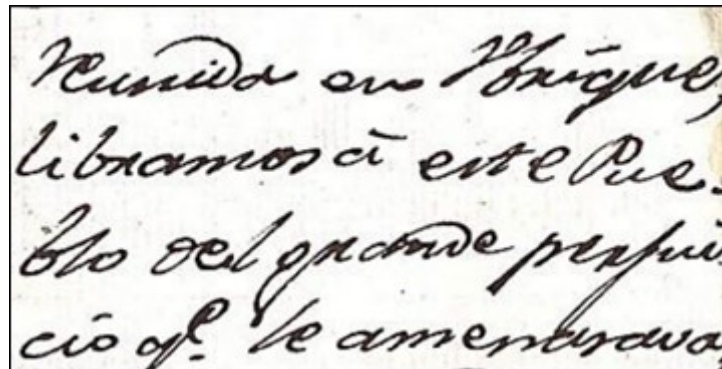 reunida en Ubrique,
libramos á este Pue-
blo del grande perjui-
cio qe. le amenasava,